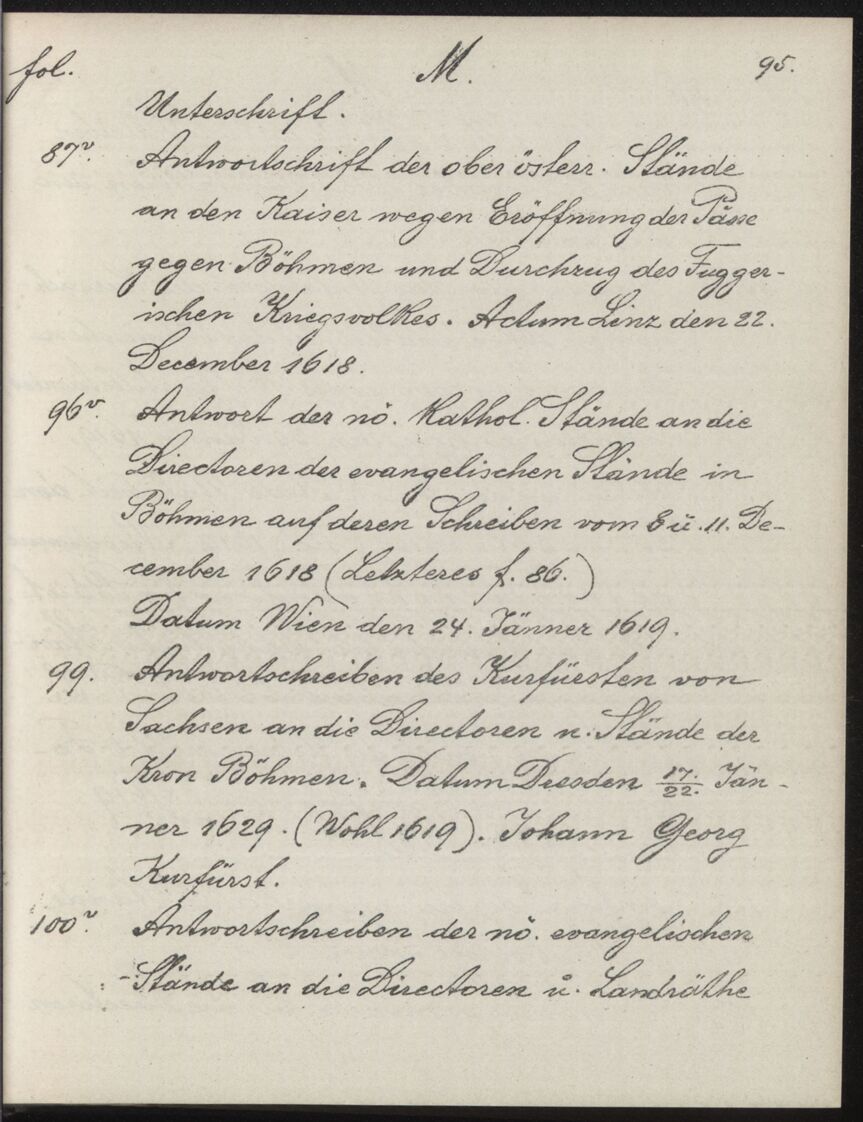 fol. M. 95.
Unterschrift.
87v. Antwortschrift der oberösterr. Stände
an den Kaiser wegen Eröffnung der Pässe
gegen Böhmen und Durchzug des Fugger-
ischen Kriegsvolkes. Actum Linz den 22.
December 1618.
96v. Antwort der nö. Kathol. Stände an die
Directoren der evangelischen Stände in
Böhmen auf deren Schreiben vom 8 ū. 11. De-
cember 1618 (Letzteres f. 86.)
Datum Wien den 24. Jänner 1619.
99. Antwortschreiben des Kurfürsten von
Sachsen an die Directoren u. Stände der
Kron Böhmen. Datum Dresden 17./22. Jän-
ner 1629. (Wohl 1619). Johann Georg
Kurfürst.
100v. Antwortschreiben der nö. evangelischen
Stände an die Directoren ů. Landräthe